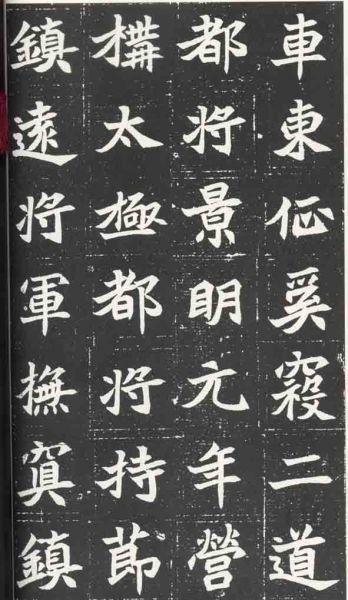 車東征奚寇二道
都将景明元年營
構太極都将持莭
鎮遠将軍撫冥鎮